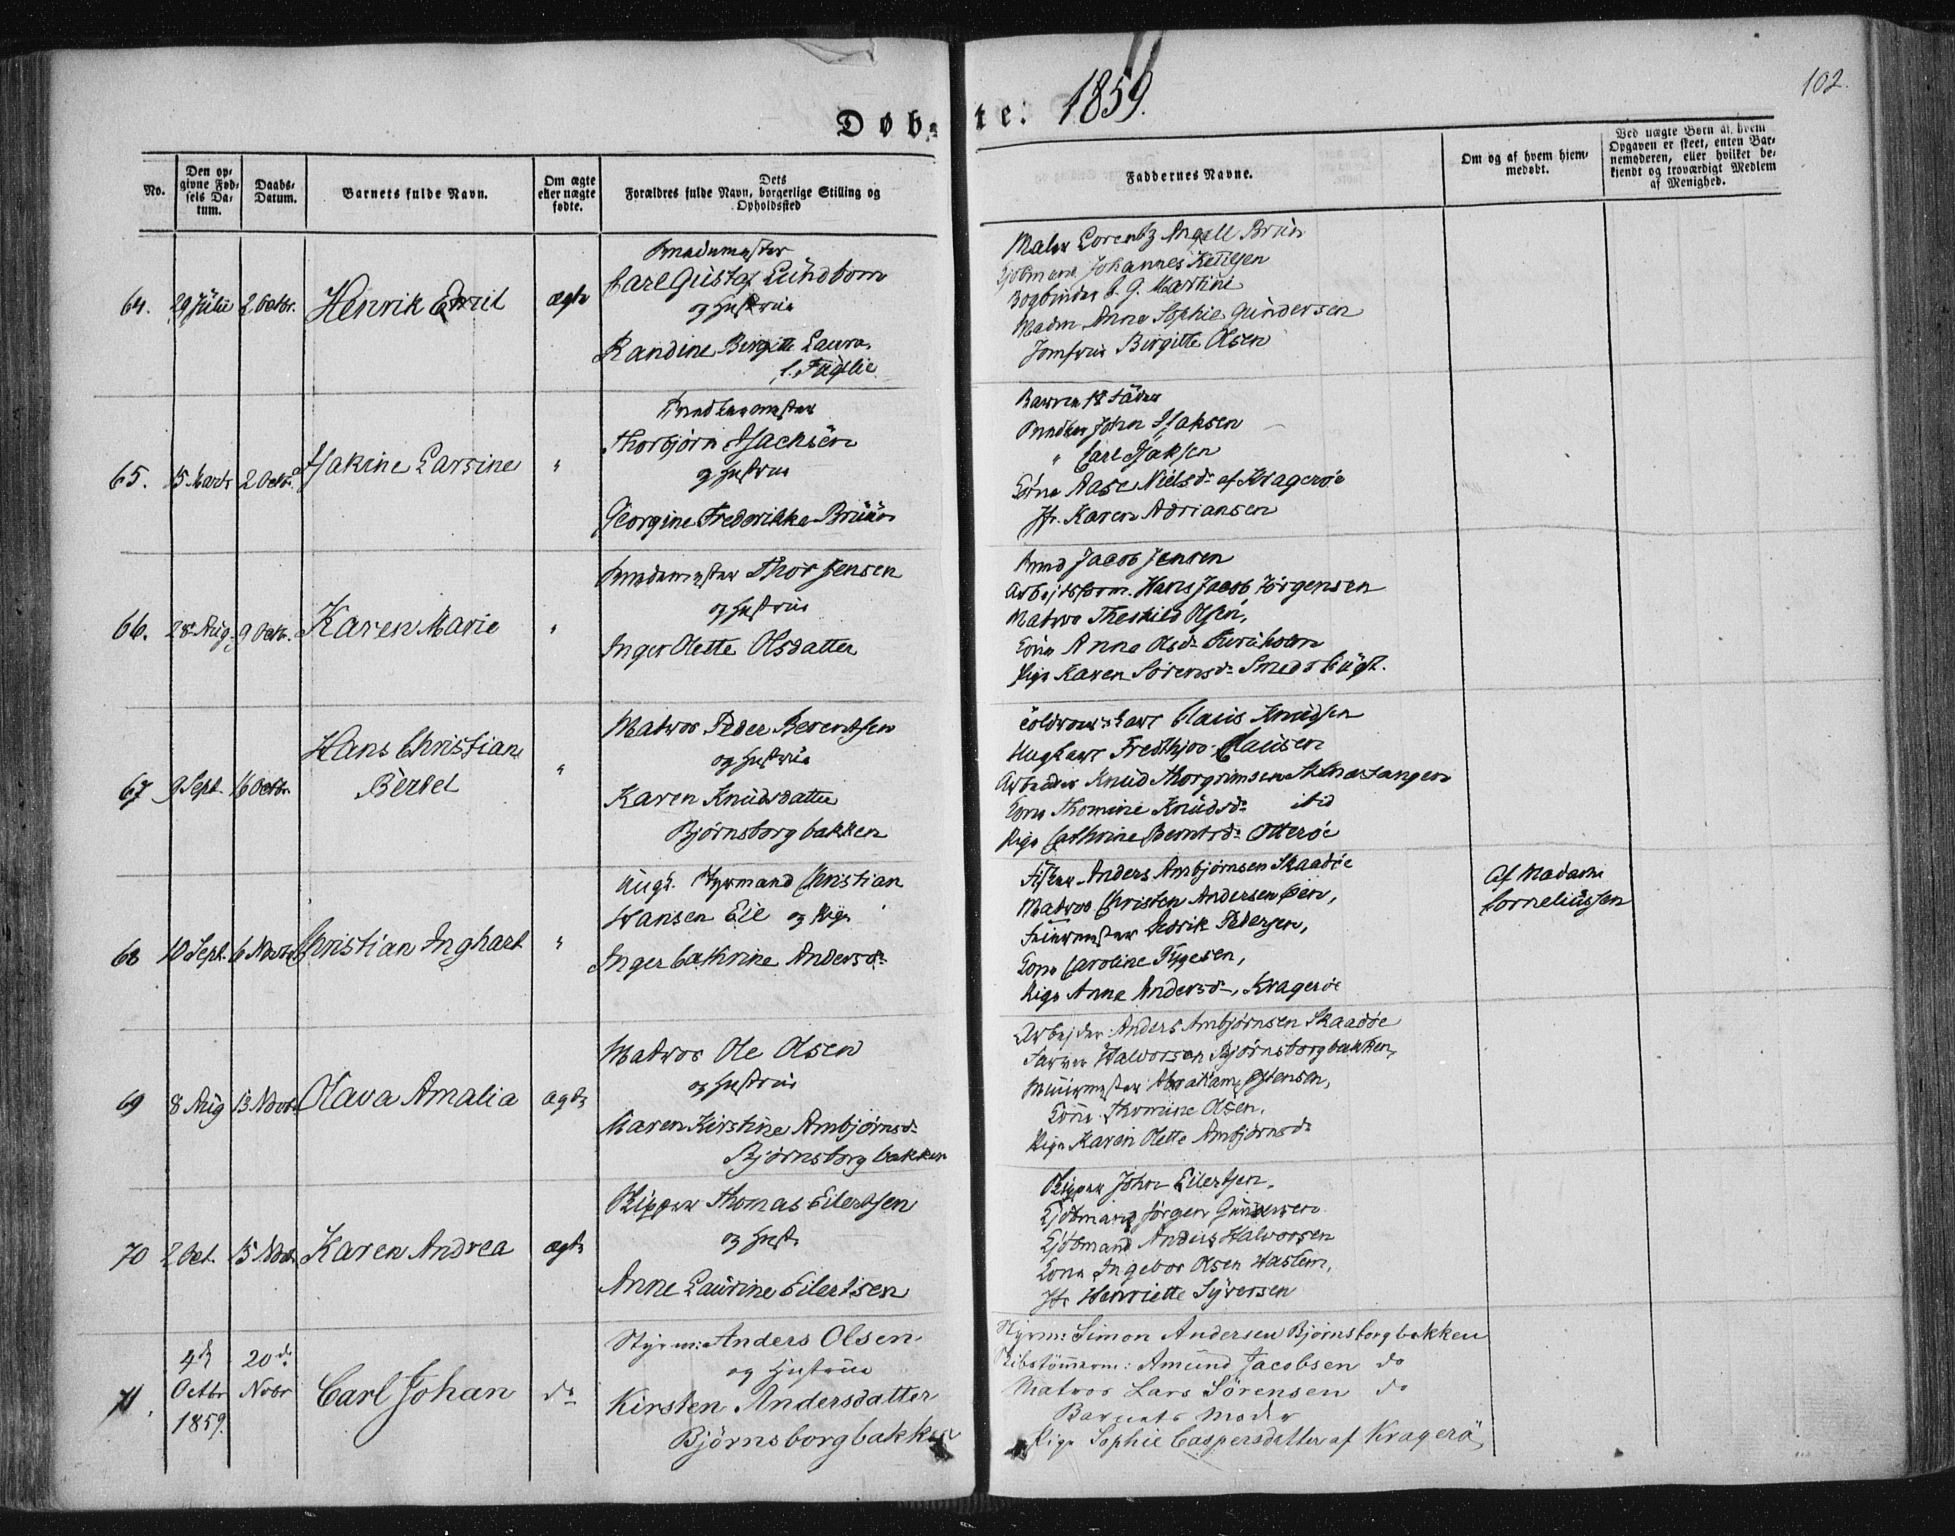 102.
Døbte: 1859.
No.
Den opgivne Fødsels Datum.
Daabs-Datum.
Barnets fulde Navn.
Om ægte eller uægte fødte.
Dets Forældres fulde Navn, borgerlige Stilling og Opholdssted
Faddernes Navne.
Om og af hvem hjemmedøbt.
Ved uægte Børn af hvem Opgaven er skeet, enten Barnemoderen, eller hvilket bekjendt og troværdigt Medlem af Menighed.
64. 29 Julie 2 Octbr. Henrik Emil ægte
Carl Gustaf Lundbom
og Hustrue
Randine Birgitte Laura
f. Fuglie
Maler Lorentz Angell Bruun
Johannes Ketilsen
Bogbinder C. G. Martini
Madm Anne Sophie Gundersen
Jomfrue Birgitte Olsen
65. 15 Marts 2 Octb. Isakine Larsine "
Thorbjørn Isachsen
og Hustrue
Georgine Frederikke Bruun
Barnets Fader
John Isaksen
" Carl Isaksen
Kone Aase Nielsd. af Kragerøe
Jfr. Karen Adriansen
66. 28 Aug. 9 Octb. Karen Marie "
Thor Jensen
og Hustrue
Inger Olette Olsdatter
Jacob Jensen
Arbejdsform. Hans Jacob Jørgensen
Matros Theskild Olsen,
Kone Anne Olsd.
Pige Karen Sørensd. Smedsbugt.
67 9 Sept. 16 Octbr. Hans Christian
Bertel "
Matros Peder Berentsen
og Hustrue
Karen Knudsdatter
Bjørnsborgbakken
Claus Knudsen
Fredthjov Clausen
Arbeider Knud Thorgrimsen
Kone Thomine Knudsd. ibid
Pige Cathrine Berntsd. Otterøe
68 10 Sept. 6 Novbr Christian Inghart "
Ungk. Styrmand Christian
Hansen Eie og Pige
Inger Cathrine Andersd.
Fisker Anders Ambjørnsen Skaadøe
Matros Christen Andersen Øen,
Pedersen,
Kone Caroline Tygesen,
Pige Anne Andersd., Kragerøe
Af Madam
Corneliussen
69 8 Aug 13 Novbr Olava Amalia ægte
Matros Ole Olsen
og Hustrue
Maren Kirstine Ambjørnsd.
Bjørnsborgbakken
Arbejder Anders Ambjørnsen Skaadøe
Halvorsen Bjørnsborgbakken,
Muurmester Abraham Østensen,
Kone Thomine Olsen.
Pige Karen Olette Ambjørnsd.
70 2 Oct. 13 Novb. Karen Andrea ægte
Skipper Thomas Eilertsen
og Hust.
Anne Laurine Eilertsen
Skipper John Eilertsen.
Kjøbmand Jørgen Gundersen
Kjøbmand Anders Halvorsen
Kone Ingebor Olsen Haslem,
Jfr Henriette Syversen
71. 4d Octbr 1859. 20de Nvbr Carl Johan do
Styrm: Anders Olsen.
og Hustrue
Kirsten Andersdatter
Bjørnsborgbakken
Styrm: Simon Andersen Bjørnsborgbakken
Skibstømerm: Amund Jacobsen do
Matros Lars Sørensen do
Barnets Moder
Pige Sophie Caspersdatter af Kragerö